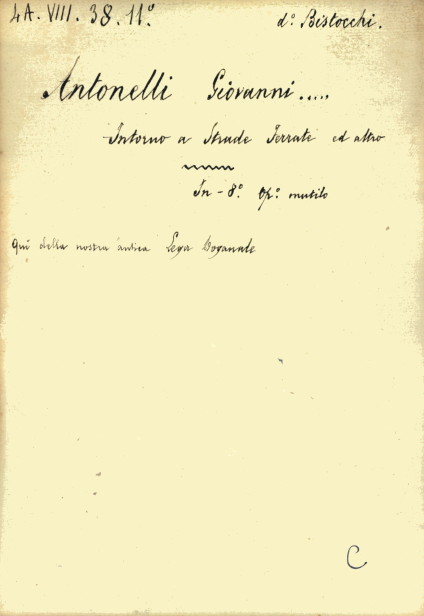 4A. VIII. 38. 11º
dº Bistocchi.
Antonelli Giovanni.....
Intorno a Strade Ferrate ed altro
In-8º. Opº mutilo
Qui della nostra antica Lega Doganale
C